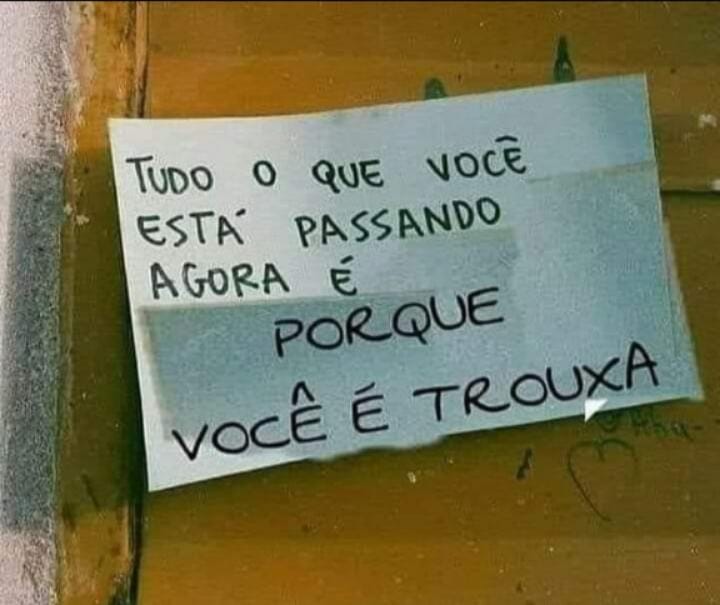 TUDO O QUE VOCÊ
ESTÁ PASSANDO
AGORA É
PORQUE
VOCÊ É TROUXA